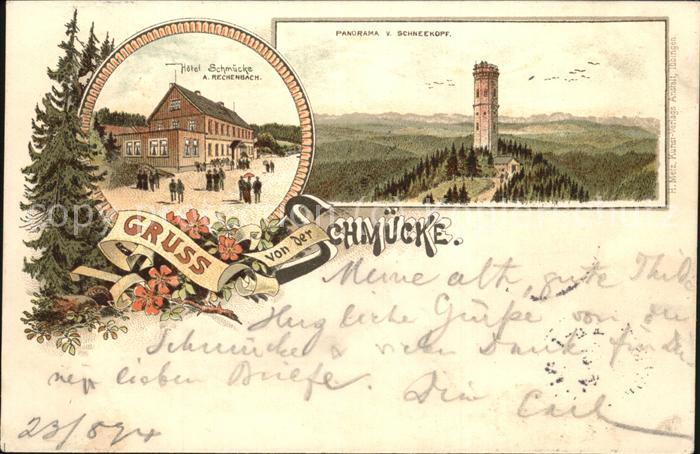 PANORAMA V. SCHNEEKOPF.
Hôtel Schmücke
A. RECHENBACH.
H. Metz, Kunst-Verlags Anstalt, Tübingen.
GRUSS von der SCHMÜCKE.
Meine alte, gute
Herzliche Grüße von der
Schmücke & vielen Dank für
lieben Briefe. Dein Carl
23/8 94